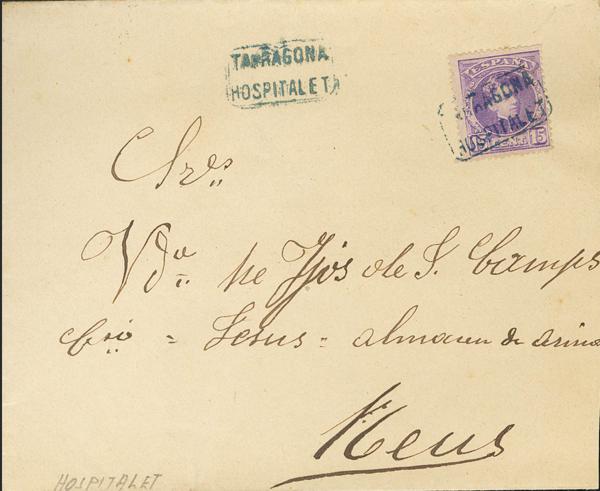 TARRAGONA
HOSPITALET
ESPAÑA
TARRAGONA
HOSPITALET
15
Sres
Vda. he Yjos de S. Camps
= Jesus = almacen de arina
Reus
HOSPITALET